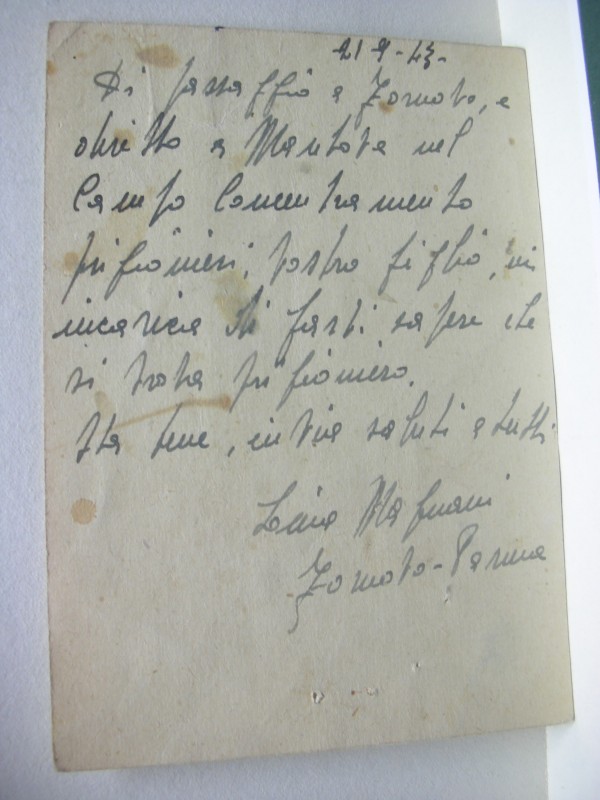 21 9-43-
Di passaggio a Fornovo, e
diretto a Mantova nel
Campo Concentramento
prigionieri, vostro figlio, mi
incarica di farvi sapere che
si trova prigioniero.
Sta bene, invia saluti a tutti
Lina Magnani
Fornovo-Parma